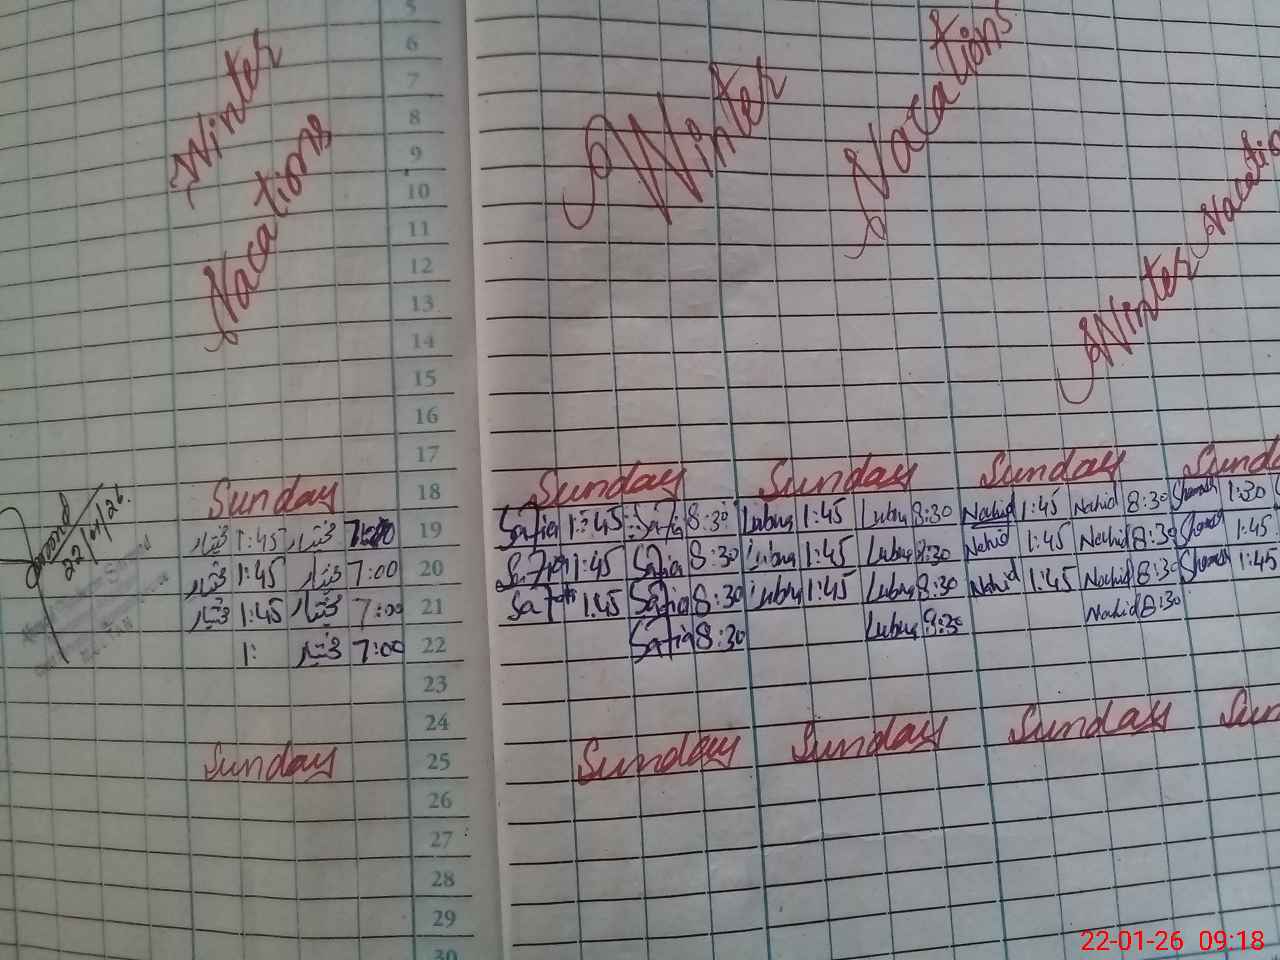 5
6
7
8
9
10
11
12
13
14
15
16
17
18
19
20
21
22
23
24
25
26
27
28
29
30
Winter
Vacations
Winter
Vacations
Winter Vacatio
Sunday Sunday Sunday Sunday Sunda
مختیار 1:45 مختیار 7:00 Safia 1:45 Safia 8:30 Lubna 1:45 Lubna 8:30 Nahid 1:45 Nahid 8:30 1:30
مختیار 1:45 مختیار 7:00 Safia 1:45 Safia 8:30 Lubna 1:45 Lubna 8:30 Nahid 1:45 Nahid 8:30 1:45
مختیار 1:45 مختیار 7:00 Safia 1:45 Safia 8:30 Lubna 1:45 Lubna 8:30 Nahid 1:45 Nahid 8:30 1:45
1: مختیار 7:00 Safia 8:30 Lubna 8:30 Nahid 8:30
Sunday Sunday Sunday Sunday Sun
22/01/26
22-01-26 09:18